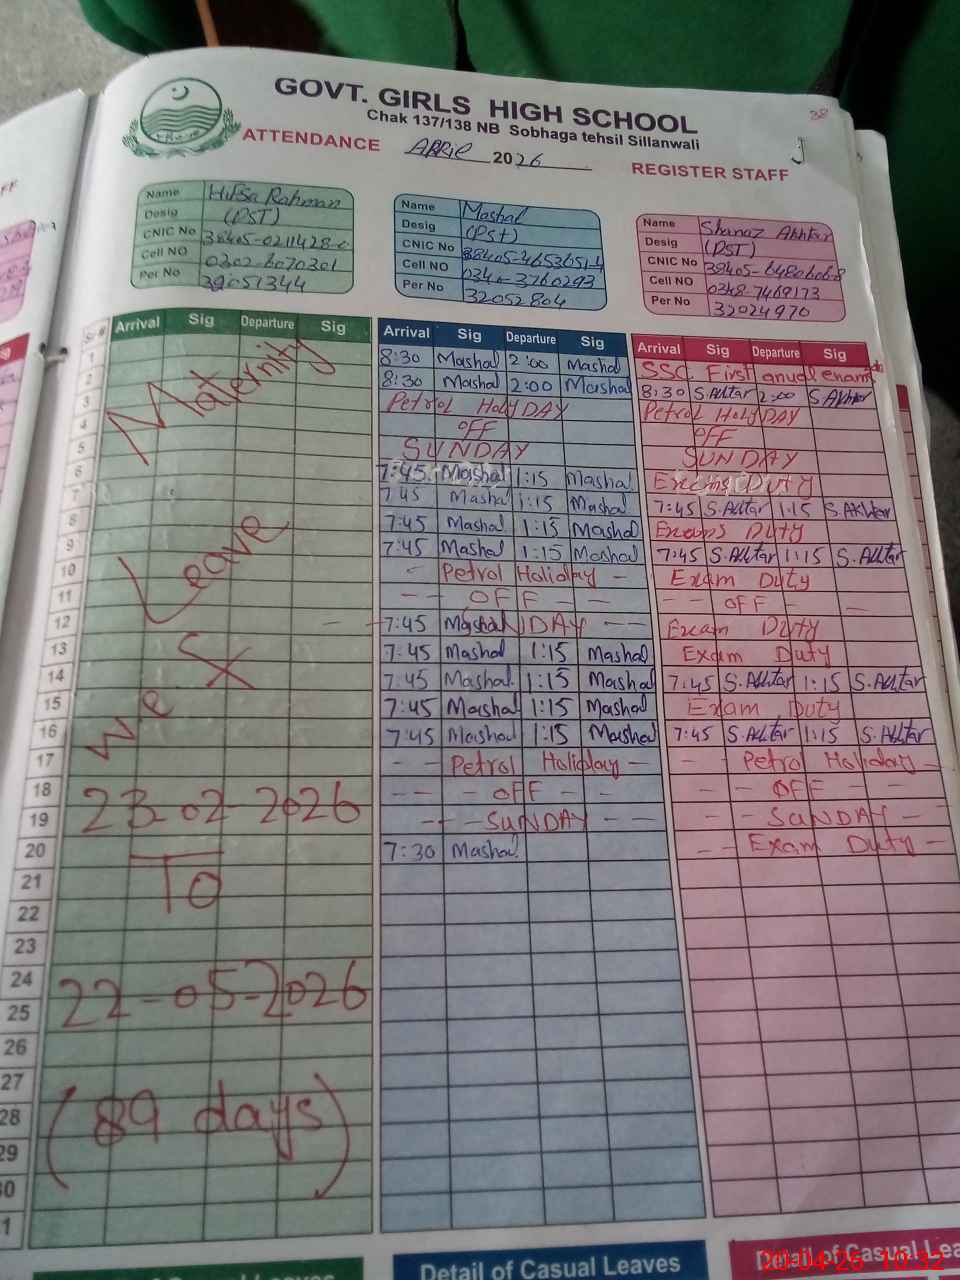 38
GOVT. GIRLS HIGH SCHOOL
Chak 137/138 NB Sobhaga tehsil Sillanwali
ATTENDANCE APRIL 2026 REGISTER STAFF
Name Hifsa Rahman
Desig (PST)
CNIC No 38405-0211428-0
Cell NO 0302-6070301
Per No 32051344
Name Mashal
Desig (Pst)
CNIC No 38405-4653651-4
Cell NO 0346-3760293
Per No 32052804
Name Shanaz Akhtar
Desig (PST)
CNIC No 38405-6480606-8
Cell NO 0348-7469173
Per No 32024970
Sr # Arrival Sig Departure Sig
Maternity
Leave
w.e.f
23-02-2026
To
22-05-2026
(89 days)
Arrival Sig Departure Sig
1 8:30 Mashal 2:00 Mashal
2 8:30 Mashal 2:00 Mashal
3 Petrol Holy DAY
4 OFF
5 SUNDAY
6 7:45 Mashal 1:15 Mashal
7 7:45 Mashal 1:15 Mashal
8 7:45 Mashal 1:15 Mashal
9 7:45 Mashal 1:15 Mashal
10 - Petrol Holiday -
11 -- OFF --
12 7:45 Mashal NDAY --
13 7:45 Mashal 1:15 Mashal
14 7:45 Mashal 1:15 Mashal
15 7:45 Mashal 1:15 Mashal
16 7:45 Mashal 1:15 Mashal
17 -- Petrol Holiday -
18 -- - OFF - -
19 -- - SUNDAY - -
20 7:30 Mashal
21
22
23
24
25
26
27
28
29
30
31
Arrival Sig Departure Sig
SSC First anual enam
8:30 S.Akhtar 2:00 S.Akhtar
Petrol Holy DAY
OFF
SUNDAY
Exams Duty
7:45 S.Akhtar 1:15 S.Akhtar
Exams Duty
7:45 S.Akhtar 1:15 S.Akhtar
Exam Duty
-- OFF - -
Exam Duty
Exam Duty
7:45 S.Akhtar 1:15 S.Akhtar
Exam Duty
7:45 S.Akhtar 1:15 S.Akhtar
- - Petrol Holiday -
- - OFF - -
- - SUNDAY -
-- Exam Duty -
of Casual Leaves
Detail of Casual Leaves
Detail of Casual Lea
20-04-26 10:32